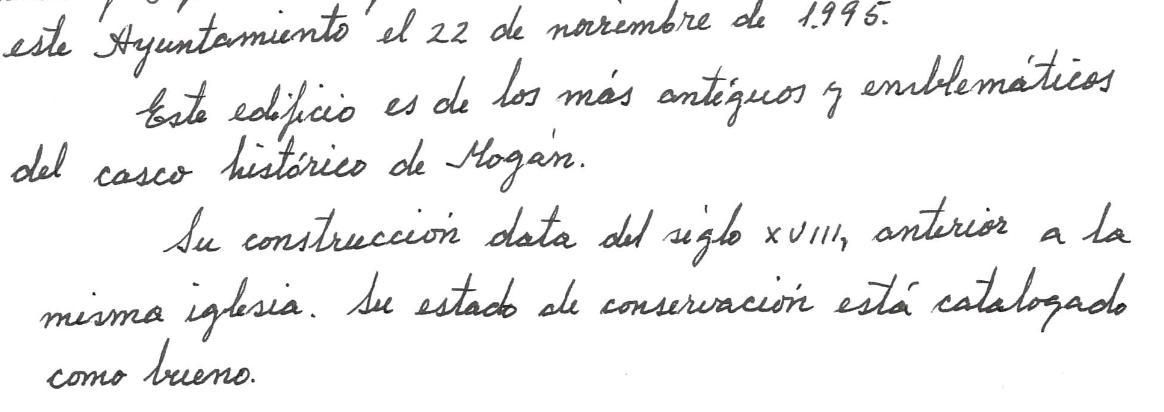 este Ayuntamiento el 22 de noviembre de 1.995.
Este edificio es de los más antiguos y emblemáticos
del casco histórico de Mogán.
Su construcción data del siglo XVIII, anterior a la
misma iglesia. Su estado de conservación está catalogado
como bueno.